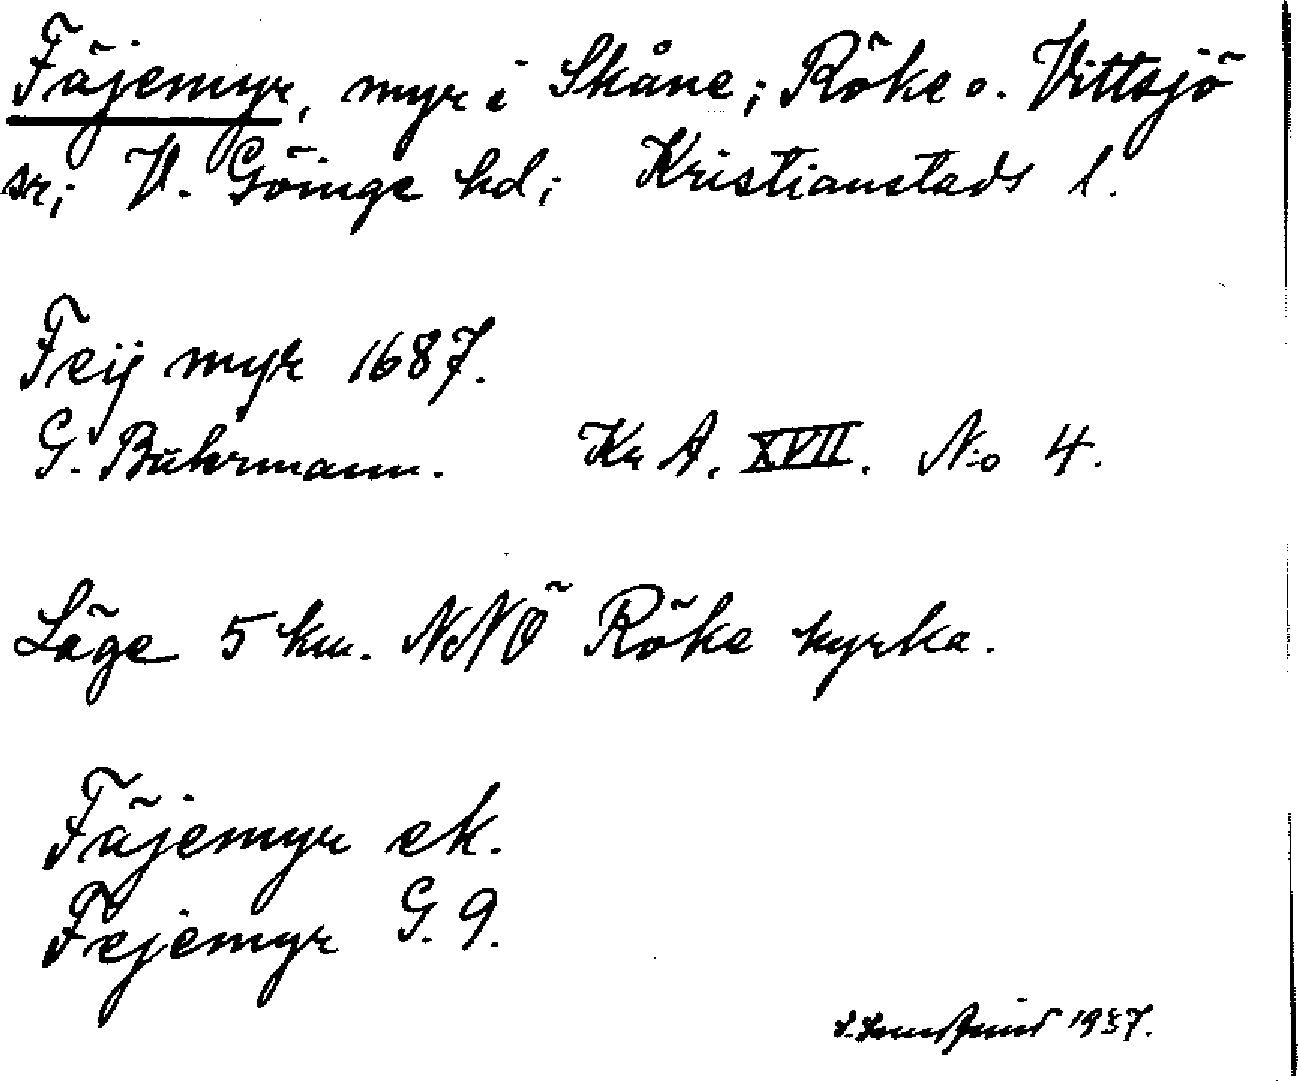 Fäjemyr, myr i Skåne; Röke o. Vittsjö
sr; V. Göinge hd; Kristianstads l.
Feij myr 1687.
G. Buhrmann. Kr A. XVII. N:o 4.
Läge 5 km. NNÖ Röke kyrka.
Fäjemyr ek.
Fejemyr G. 9.
1937.